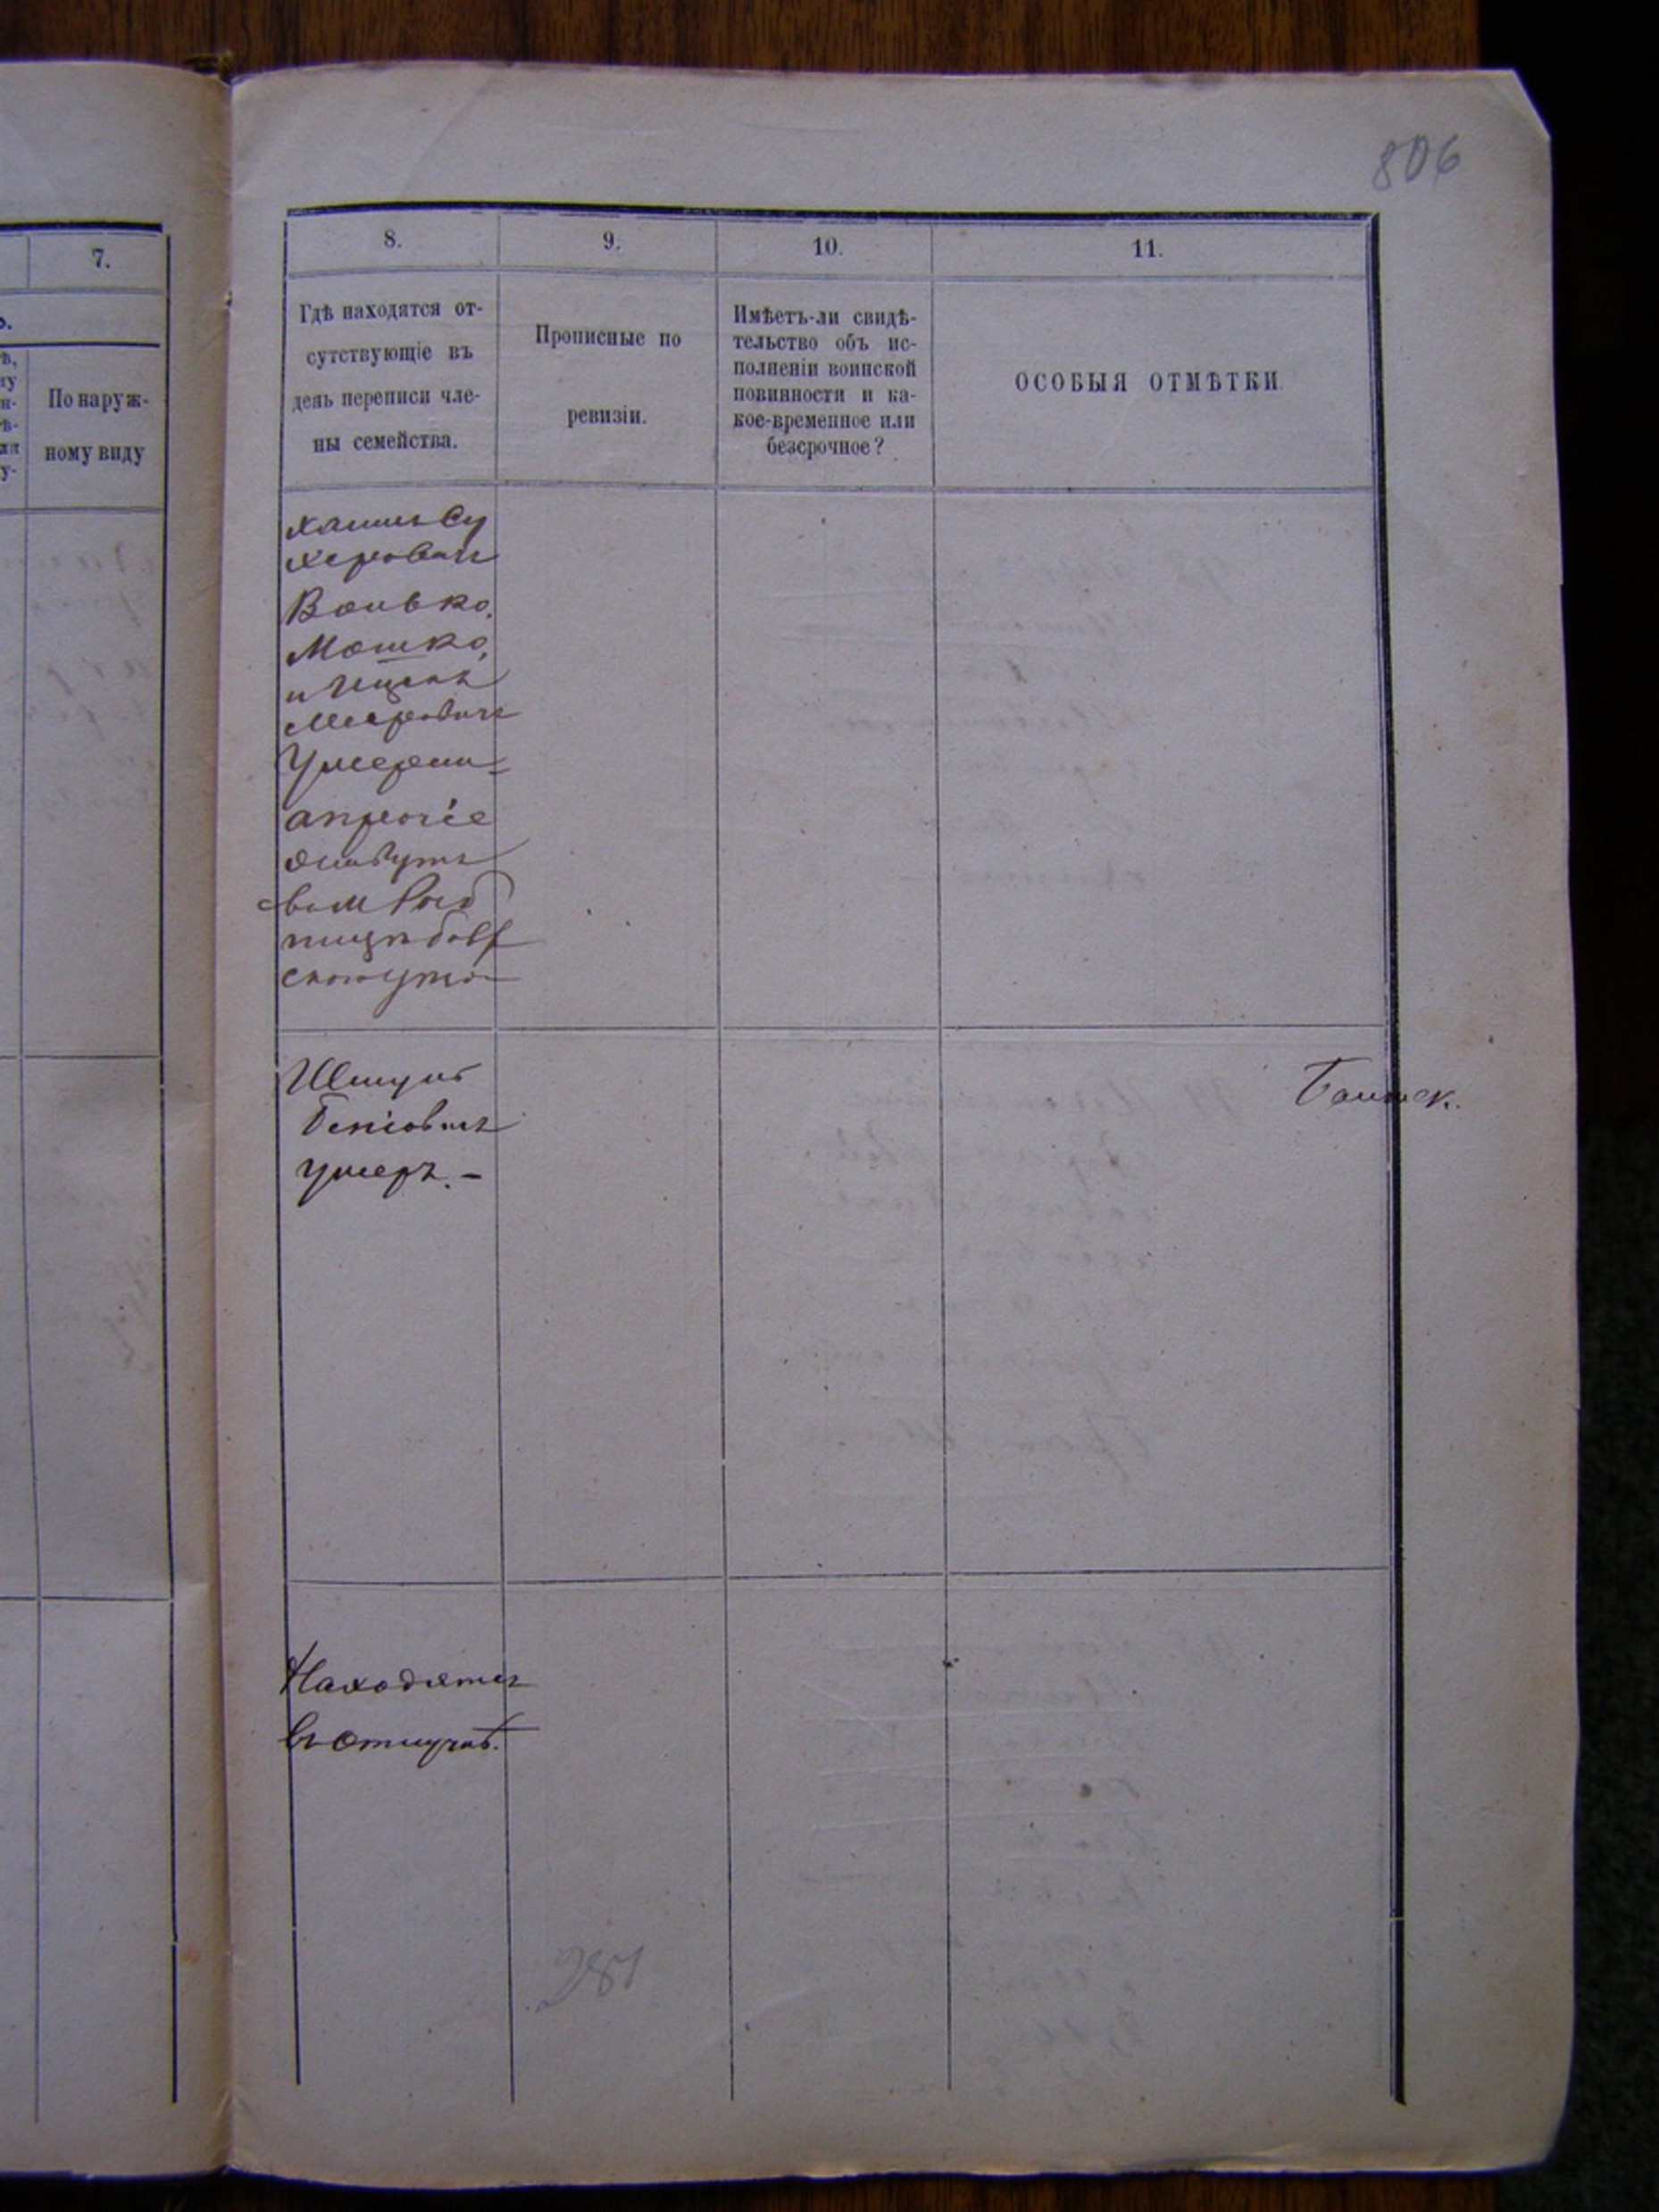 806
7.
По наруж-
ному виду
8.
9.
10.
11.
Гдѣ находятся от-
сутствующіе въ
день переписи чле-
ны семейства.
Прописные по
ревизіи.
Имѣетъ-ли свидѣ-
тельство объ ис-
полненіи воинской
повинности и ка-
кое-временное или
безсрочное?
ОСОБЫЯ ОТМѢТКИ.
Хаимъ Су
херовичъ
Волько,
Мошко,
и Ицекъ
Мееровичъ
Умерли
апрочіе
живутъ
Шмуль
Беніовичъ
умеръ. –
Находятся
въ отлучкѣ.
281